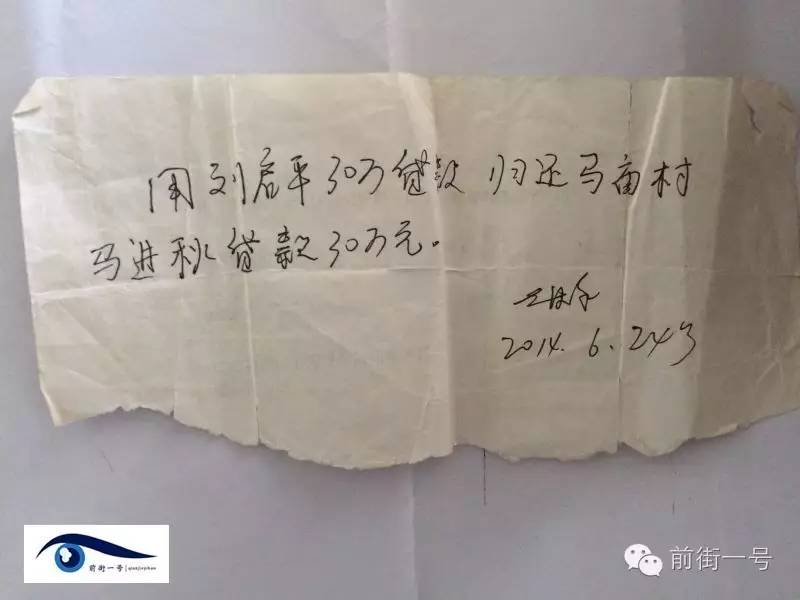 用刘启平30万贷款 归还马庙村
马进秋贷款30万元。
2014.6.24号
前街一号 | qianjieyihao
前街一号